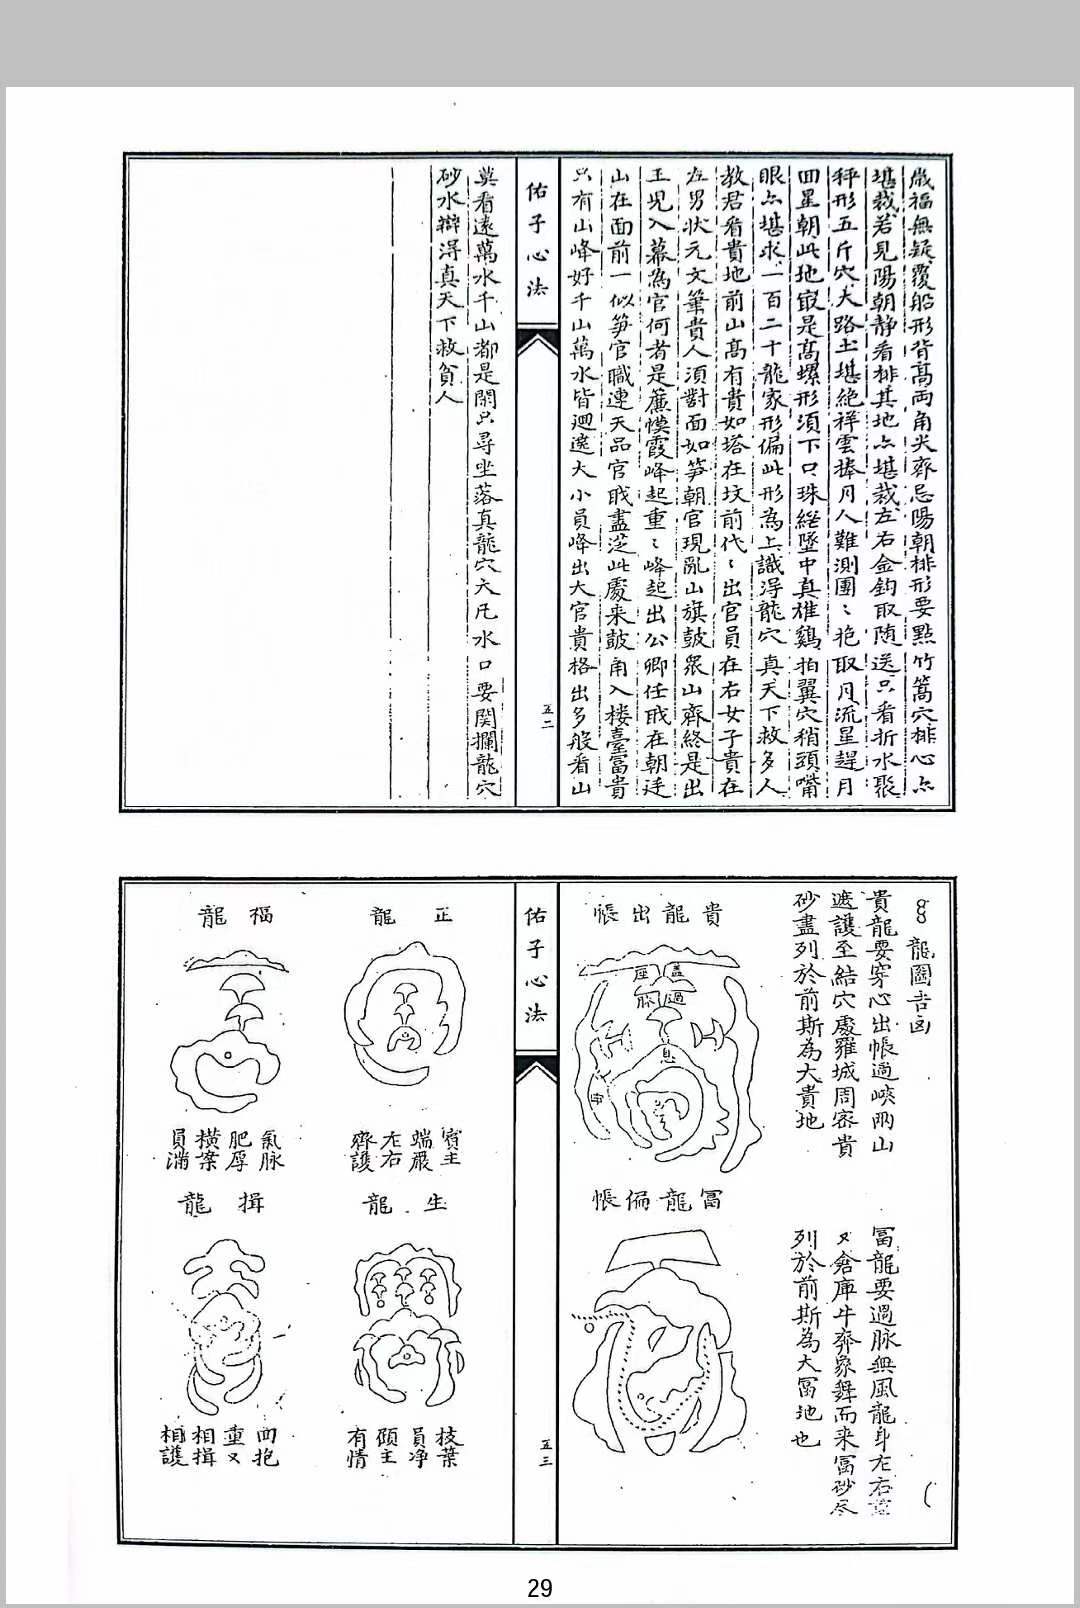 歲福無疑覆船形背高両角尖齊忌陽朝排形要點竹篙穴排心点
堪裁若見陽朝静看排其地点堪裁左右金鈎取随送只看折水聚
秤形五斤穴大路土堪絶祥雲捧月人難測團〻抱取月流星趕月
四星朝此地㝡是高螺形須下口珠䋲墜中真雄鷄拍翼穴稍頭嘴
眼点堪求一百二十龍家形偏此形為上識得龍穴真天下救多人
教君看貴地前山高有貴如塔在坟前代〻出官員在右女子貴在
左男状元文筆貴人須對面如笋朝官現亂山旗鼓衆山齊終是出
王児入幕為官何者是簾幙霞峰起重〻峰起出公卿任戝在朝廷
山在面前一似笋官職連天品官戝盡芝此處来鼓角入楼臺富貴
只有山峰好千山萬水皆迴遶大小員峰出大官貴格出多般看山
佑子心法
五二
莫看遠萬水千山都是閒只尋坐落真龍穴大凡水口要関攔龍穴
砂水辯得真天下救貧人
龍圖吉凶
貴龍要穿心出帳過峽両山
遮護至結穴處羅城周宻貴
砂盡列於前斯為大貴地
富龍要過脉無風龍身左右
又倉庫牛奔象舞而来富砂尽
列於前斯為大富地也
貴龍出帳
蓋座
過脉
息
富龍偏帳
佑子心法
五三
正龍
賓主
端嚴
左右
齊護
生龍
枝葉
員净
顧主
有情
福龍
氣脉
肥厚
横案
員満
揖龍
回抱
重又
相揖
相護
29